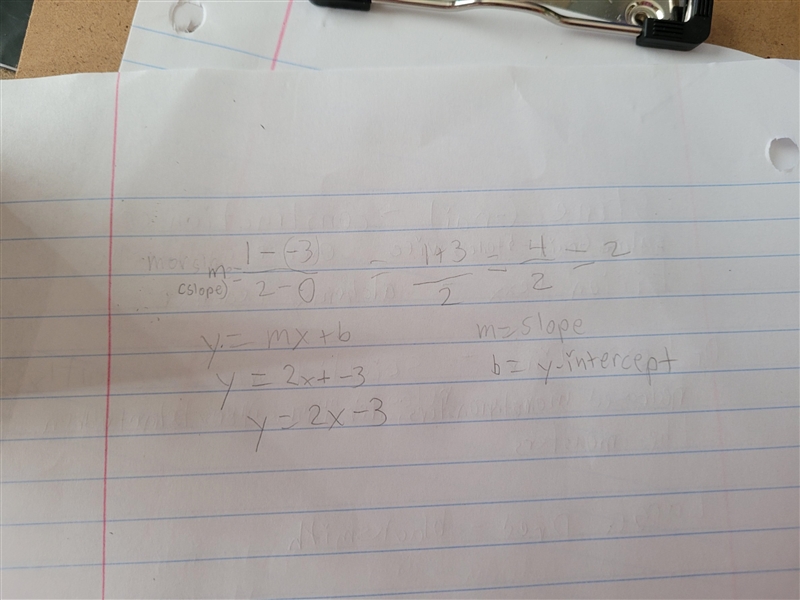 m = 1 - (-3) / 2 - 0 = 1+3 / 2 = 4 / 2 = 2
(slope)
y = mx + b
m = slope
y = 2x + -3
b = y-intercept
y = 2x - 3